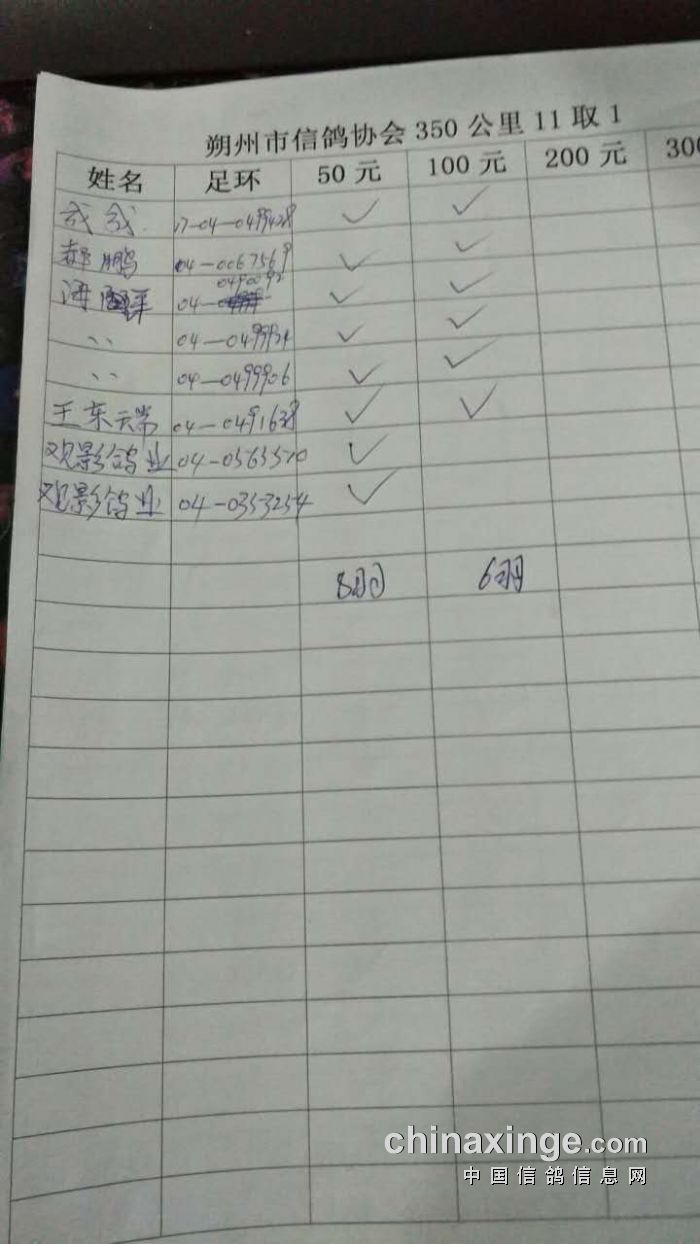 朔州市信鸽协会 350 公里 11 取 1
姓名 足环 50 元 100 元 200 元 300
成成 17-04-0499428 ✓ ✓
郝鹏 04-0067569 ✓ ✓
0490092
04- ✓ ✓
〃 04-0499924 ✓ ✓
〃 04-0499906 ✓ ✓
王东云常 04-0491638 ✓ ✓
观影鸽业 04-0363510 ✓
观影鸽业 04-0353254 ✓
8羽 6羽
chinaxinge.com
中国信鸽信息网